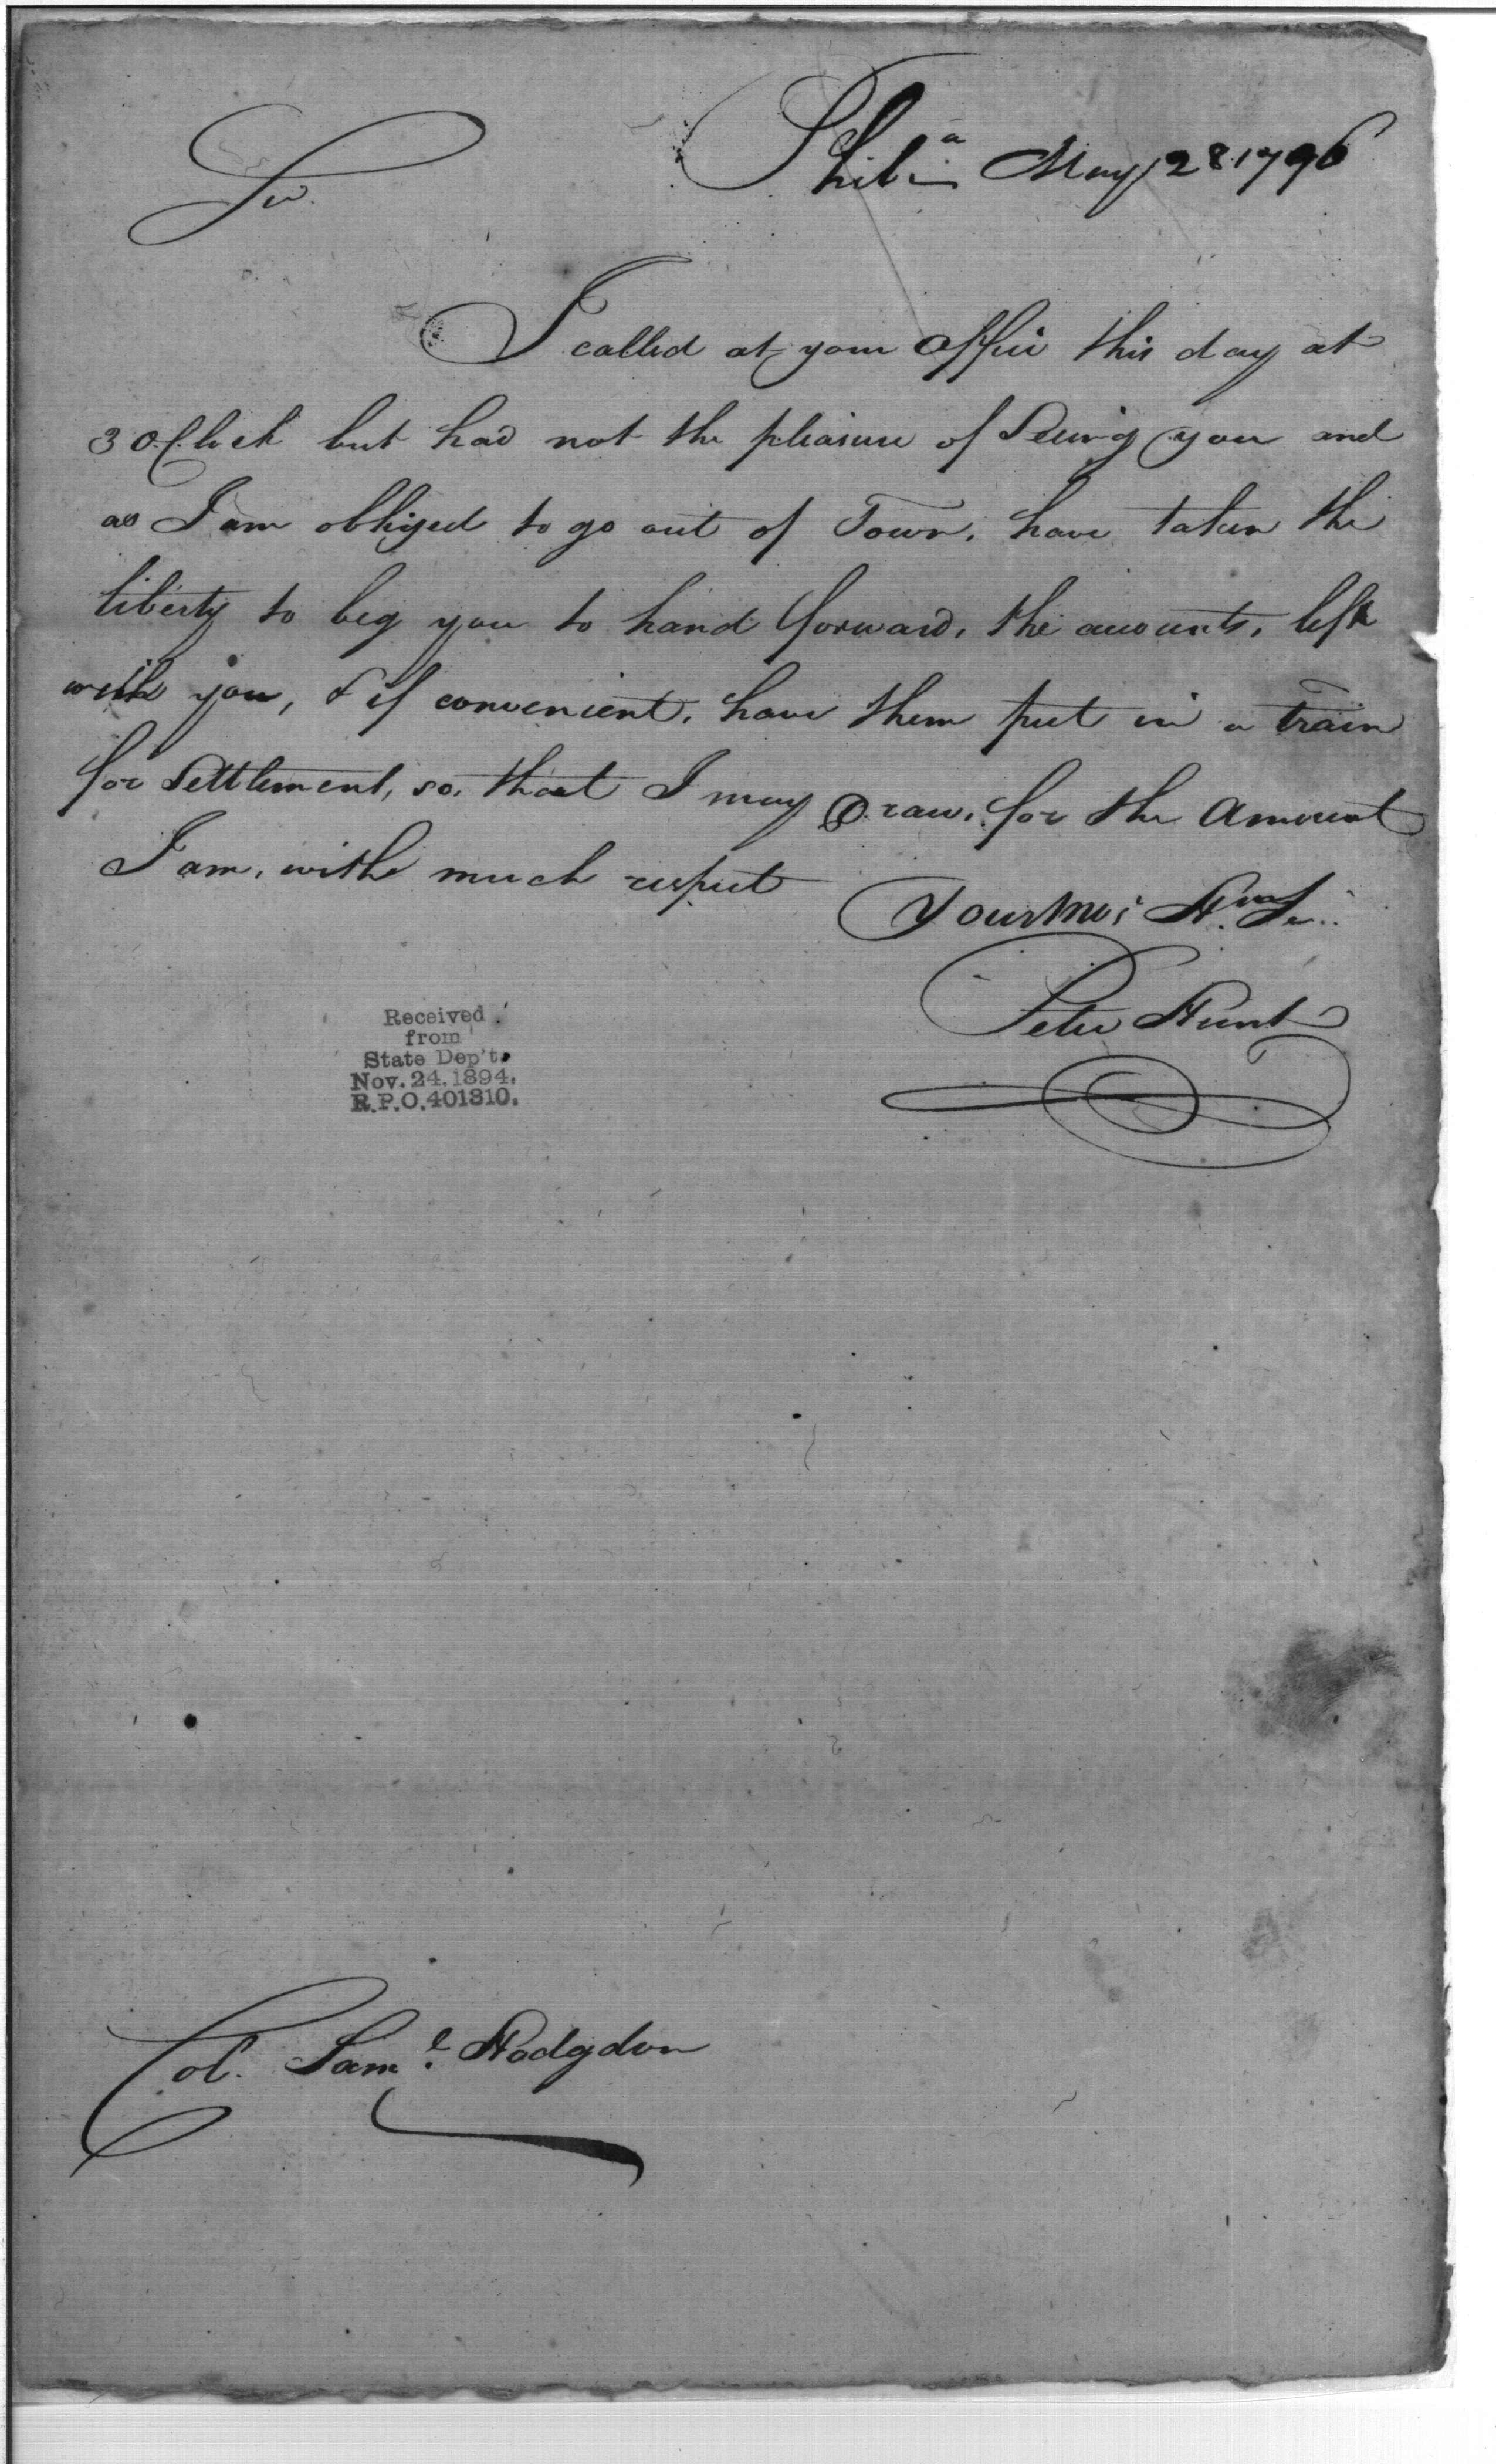 Phil.ª May 28. 1796
Sir.
I called at your Office this day at
3 OClock but had not the pleasure of Seeing you and
as I am obliged to go out of Town, have taken the
liberty to beg you to hand forward, the accounts, left
with you, & if convenient, have them put in a train
for Settlement, so, that I may Draw, for the Amount
I am, with much respect
Your Mo:
Peter Hunt
Received
from
State Dep't.
Nov. 24. 1894.
R.P.O. 401310.
Col. Sam.l Hodgdon